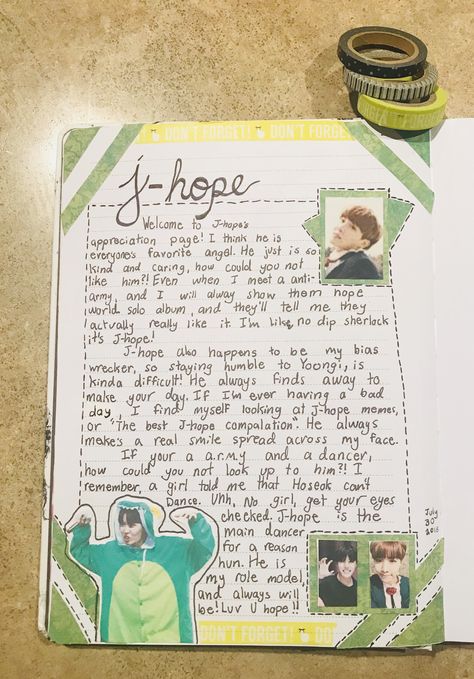 DON'T FORGET! DON'T FORGE
j-hope
Welcome to J-hope's
appreciation page! I think he is
everyone's favorite angel. He just is so
kind and caring, how could you not
like him?! Even when I meet a anti-
army, and I will alway show them hope
world solo album, and they'll tell me they
actually really like it. I'm like, no dip sherlock
it's J-hope!
J-hope also happens to be my bias
wrecker, so staying humble to Yoongi, is
kinda difficult! He always finds away to
make your day. If I'm ever having a bad
day, I find myself looking at J-hope memes,
or "The best J-hope compalation". He always
makes a real smile spread across my face.
If your a a.r.m.y and a dancer,
how could you not look up to him?! I
remember, a girl told me that Hoseok can't
Dance. Uhh, No girl, get your eyes
checked. J-hope is the
main dancer
for a reason
hun. He is
my role model,
and always will
be! Luv U hope!!
July
30
2018
DON'T FORGET! DO